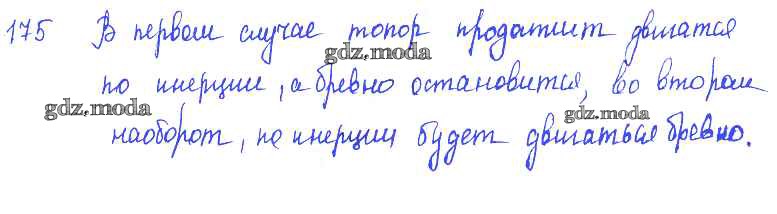 175 В первом случае топор продатит двигатся
gdz.moda
по инерции, а бревно остановится, во втором
gdz.moda gdz.moda
наоборот, по инерции будет двигаться бревно.